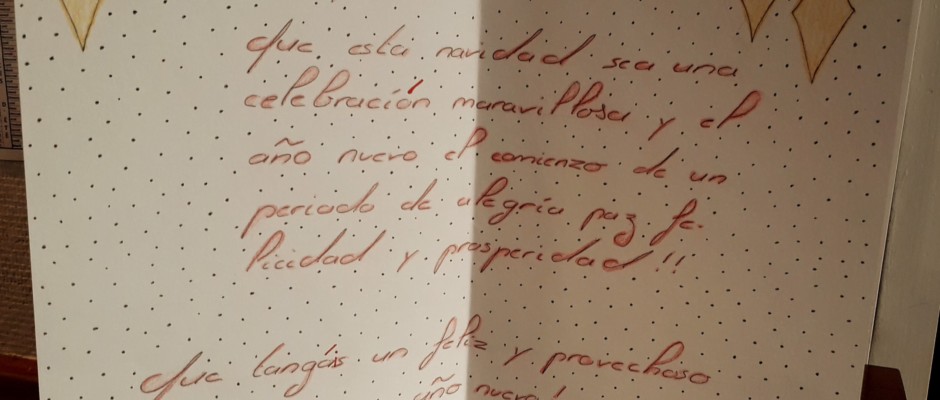 Que esta navidad sea una
celebración maravillosa y el
año nuevo el comienzo de un
periodo de alegría paz fe-
licidad y prosperidad!!
Que tangáis un feliz y provechoso
año nuevo!